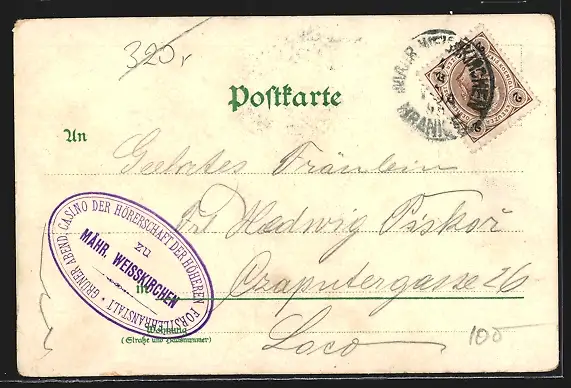 320,
MÄHR. WEISSKIRCHEN
HRANICE
2
2
Postkarte
An
Geehrtes Fräulein
Frl Hedwig Piskoř
GRÜNER ABEND, CASINO DER HÖRERSCHAFT DER HÖHEREN FORSTLEHRANSTALT
zu
MÄHR. WEISSKIRCHEN
in
Czaputergasse 26
Wohnung
(Straße und Hausnummer)
Loco
100